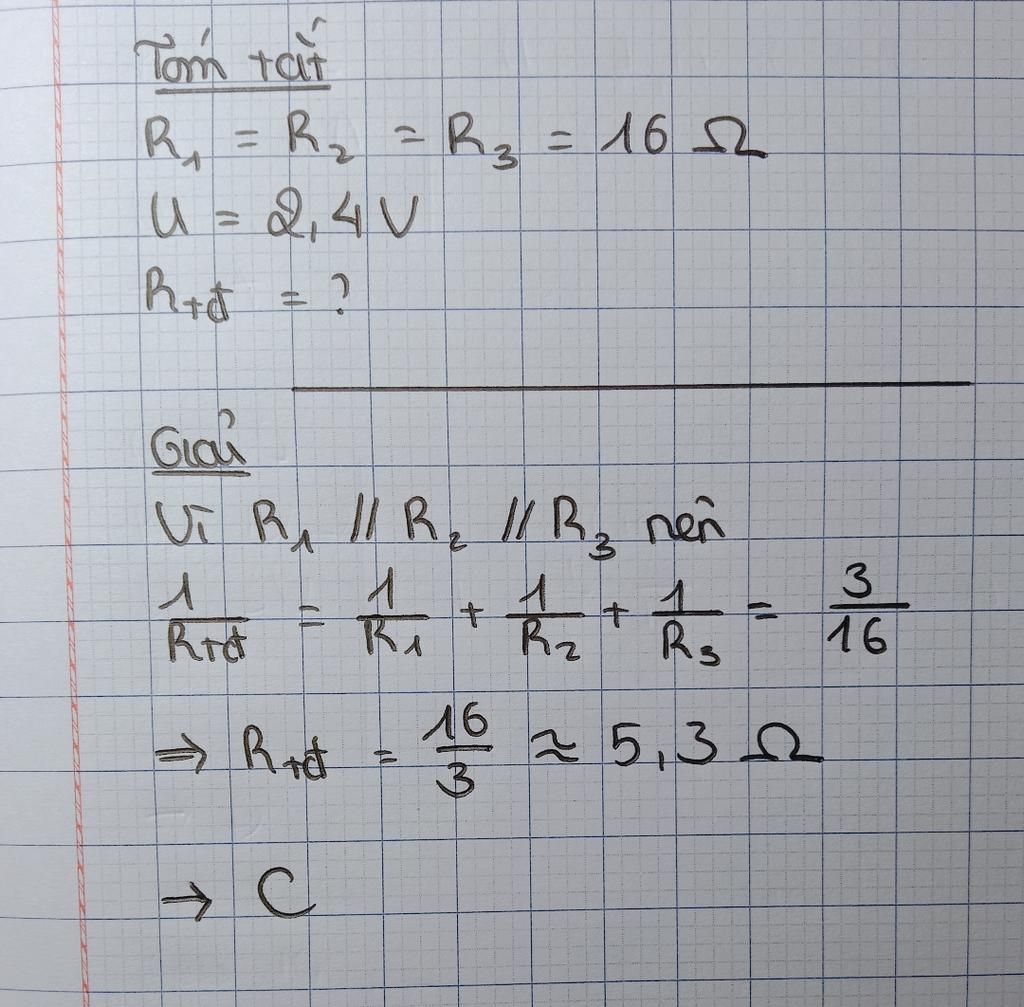 Tóm tắt
R₁ = R₂ = R₃ = 16 Ω
U = 2,4 V
Rtđ = ?
Giải
Vì R₁ // R₂ // R₃ nên
1/Rtđ = 1/R₁ + 1/R₂ + 1/R₃ = 3/16
⇒ Rtđ = 16/3 ≈ 5,3 Ω
→ C